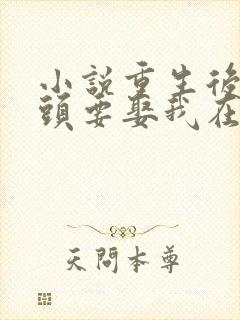 小說重生後
頭要娶我在
天問本尊